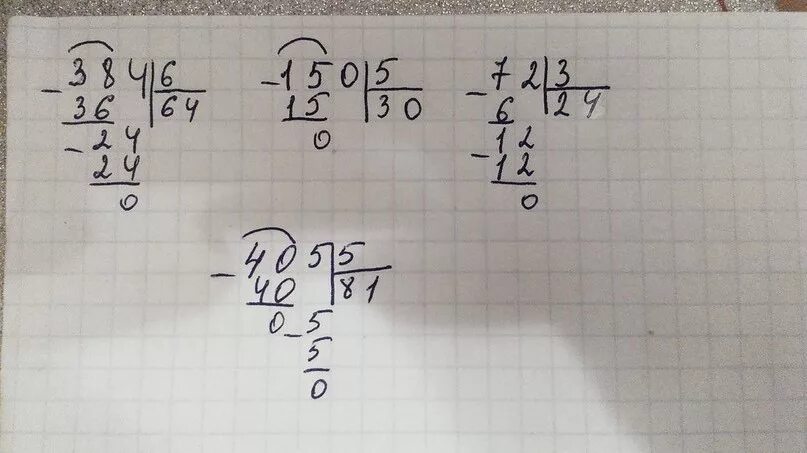 - 384|6
36 |64
- 24
24
0
- 150|5
15 |30
0
- 72|3
6 |24
12
- 12
0
- 405|5
40 |81
0 - 5
5
0